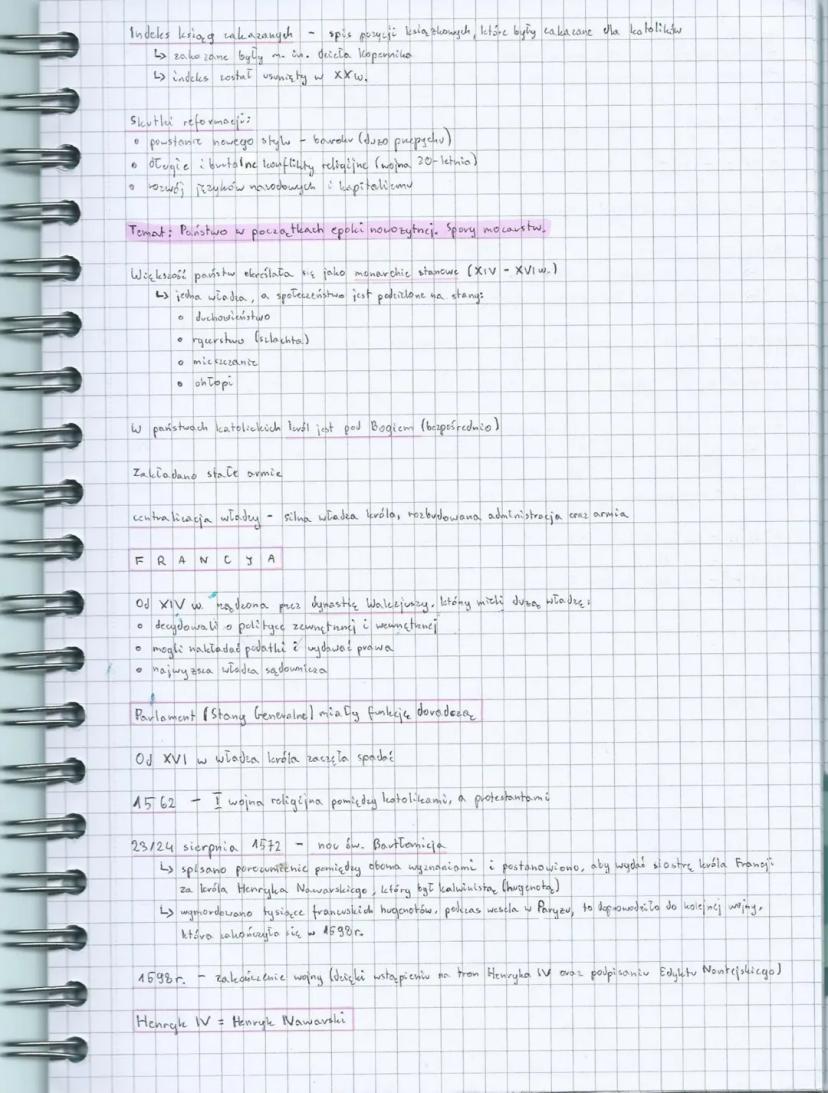 Indeks ksiąg zakazanych - spis pozycji książkowych, które były zakazane dla katolików
↳ zakazane były m. in. dzieła Kopernika
↳ indeks został usunięty w XXw.
Skutki reformacji:
• powstanie nowego stylu - baroku (dużo przepychu)
• długie i brutalne konflikty religijne (wojna 30-letnia)
• rozwój języków narodowych i kapitalizmu
Temat: Państwo w początkach epoki nowożytnej. Spory mocarstw.
Większość państw określała się jako monarchie stanowe (XIV - XVI w.)
↳ jedna władza, a społeczeństwo jest podzielone na stany:
• duchowieństwo
• rycerstwo (szlachta)
• mieszczanie
• chłopi
W państwach katolickich król jest pod Bogiem (bezpośrednio)
Zakładano stałe armie
centralizacja władzy - silna władza króla, rozbudowana administracja oraz armia
F R A N C J A
Od XIV w. rządzona przez dynastię Walezjuszy, który mieli dużą władzę:
• decydowali o polityce zewnętrznej i wewnętrznej
• mogli nakładać podatki i wydawać prawa
• najwyższa władza sądownicza
Parlament (Stany Generalne) miały funkcję doradczą
Od XVI w władza króla zaczęła spadać
1562 - I wojna religijna pomiędzy katolikami, a protestantami
23/24 sierpnia 1572 - noc św. Bartłomieja
↳ spisano porozumienie pomiędzy oboma wyznaniami i postanowiono, aby wydać siostrę króla Francji
za króla Henryka Nawarskiego, który był kalwinistą (hugenotą)
↳ wymordowano tysiące francuskich hugenotów, podczas wesela w Paryżu, to doprowadziło do kolejnej wojny,
która zakończyła się w 1598r.
1598r. - zakończenie wojny (dzięki wstąpieniu na tron Henryka IV oraz podpisaniu Edyktu Nantejskiego)
Henryk IV = Henryk Nawarski